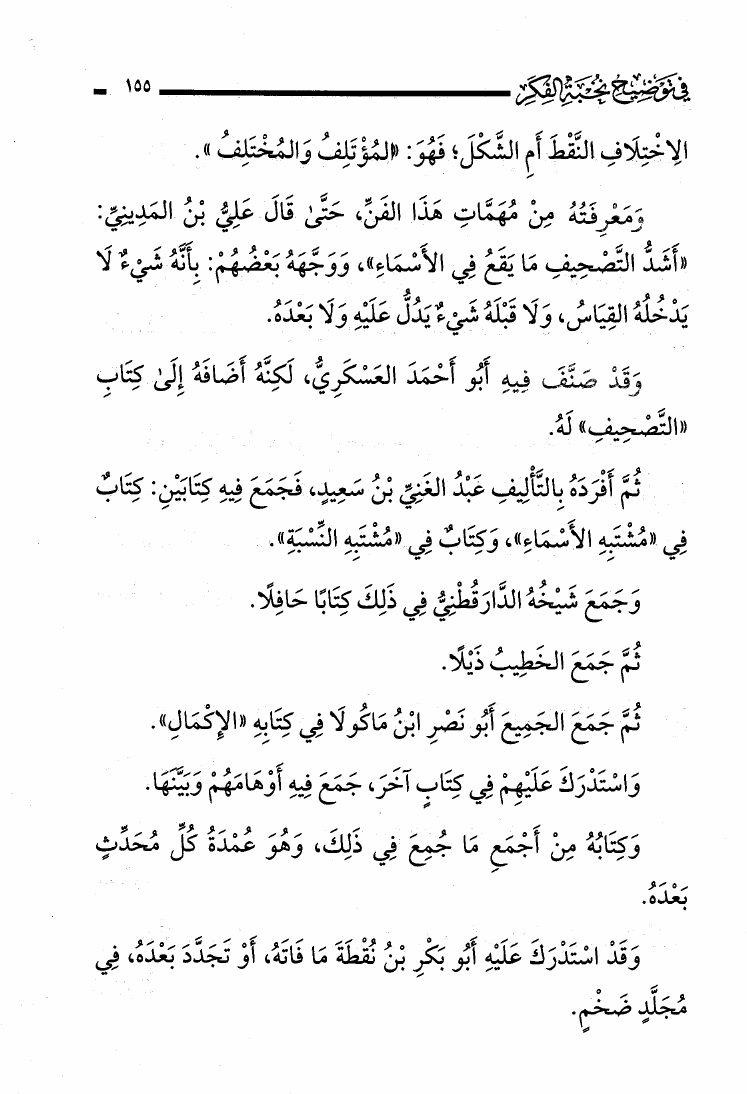 في توضيح نخبة الفكر ١٥٥
الِاخْتِلَافِ النَّقْطَ أَمِ الشَّكْلَ؛ فَهُوَ: «المُؤْتَلِفُ وَالمُخْتَلِفُ».
وَمَعْرِفَتُهُ مِنْ مُهِمَّاتِ هَذَا الفَنِّ، حَتَّىٰ قَالَ عَلِيُّ بْنُ المَدِينِيِّ:
«أَشَدُّ التَّصْحِيفِ مَا يَقَعُ فِي الأَسْمَاءِ»، وَوَجَّهَهُ بَعْضُهُمْ: بِأَنَّهُ شَيْءٌ لَا
يَدْخُلُهُ القِيَاسُ، وَلَا قَبْلَهُ شَيْءٌ يَدُلُّ عَلَيْهِ وَلَا بَعْدَهُ.
وَقَدْ صَنَّفَ فِيهِ أَبُو أَحْمَدَ العَسْكَرِيُّ، لَكِنَّهُ أَضَافَهُ إِلَىٰ كِتَابِ
«التَّصْحِيفِ» لَهُ.
ثُمَّ أَفْرَدَهُ بِالتَّأْلِيفِ عَبْدُ الغَنِيِّ بْنُ سَعِيدٍ، فَجَمَعَ فِيهِ كِتَابَيْنِ: كِتَابٌ
فِي «مُشْتَبِهِ الأَسْمَاءِ»، وَكِتَابٌ فِي «مُشْتَبِهِ النِّسْبَةِ».
وَجَمَعَ شَيْخُهُ الدَّارَقُطْنِيُّ فِي ذَلِكَ كِتَابًا حَافِلًا.
ثُمَّ جَمَعَ الخَطِيبُ ذَيْلًا.
ثُمَّ جَمَعَ الجَمِيعَ أَبُو نَصْرِ ابْنُ مَاكُولَا فِي كِتَابِهِ «الإِكْمَالِ».
وَاسْتَدْرَكَ عَلَيْهِمْ فِي كِتَابٍ آخَرَ، جَمَعَ فِيهِ أَوْهَامَهُمْ وَبَيَّنَهَا.
وَكِتَابُهُ مِنْ أَجْمَعِ مَا جُمِعَ فِي ذَلِكَ، وَهُوَ عُمْدَةُ كُلِّ مُحَدِّثٍ
بَعْدَهُ.
وَقَدْ اسْتَدْرَكَ عَلَيْهِ أَبُو بَكْرِ بْنُ نُقْطَةَ مَا فَاتَهُ، أَوْ تَجَدَّدَ بَعْدَهُ، فِي
مُجَلَّدٍ ضَخْمٍ.